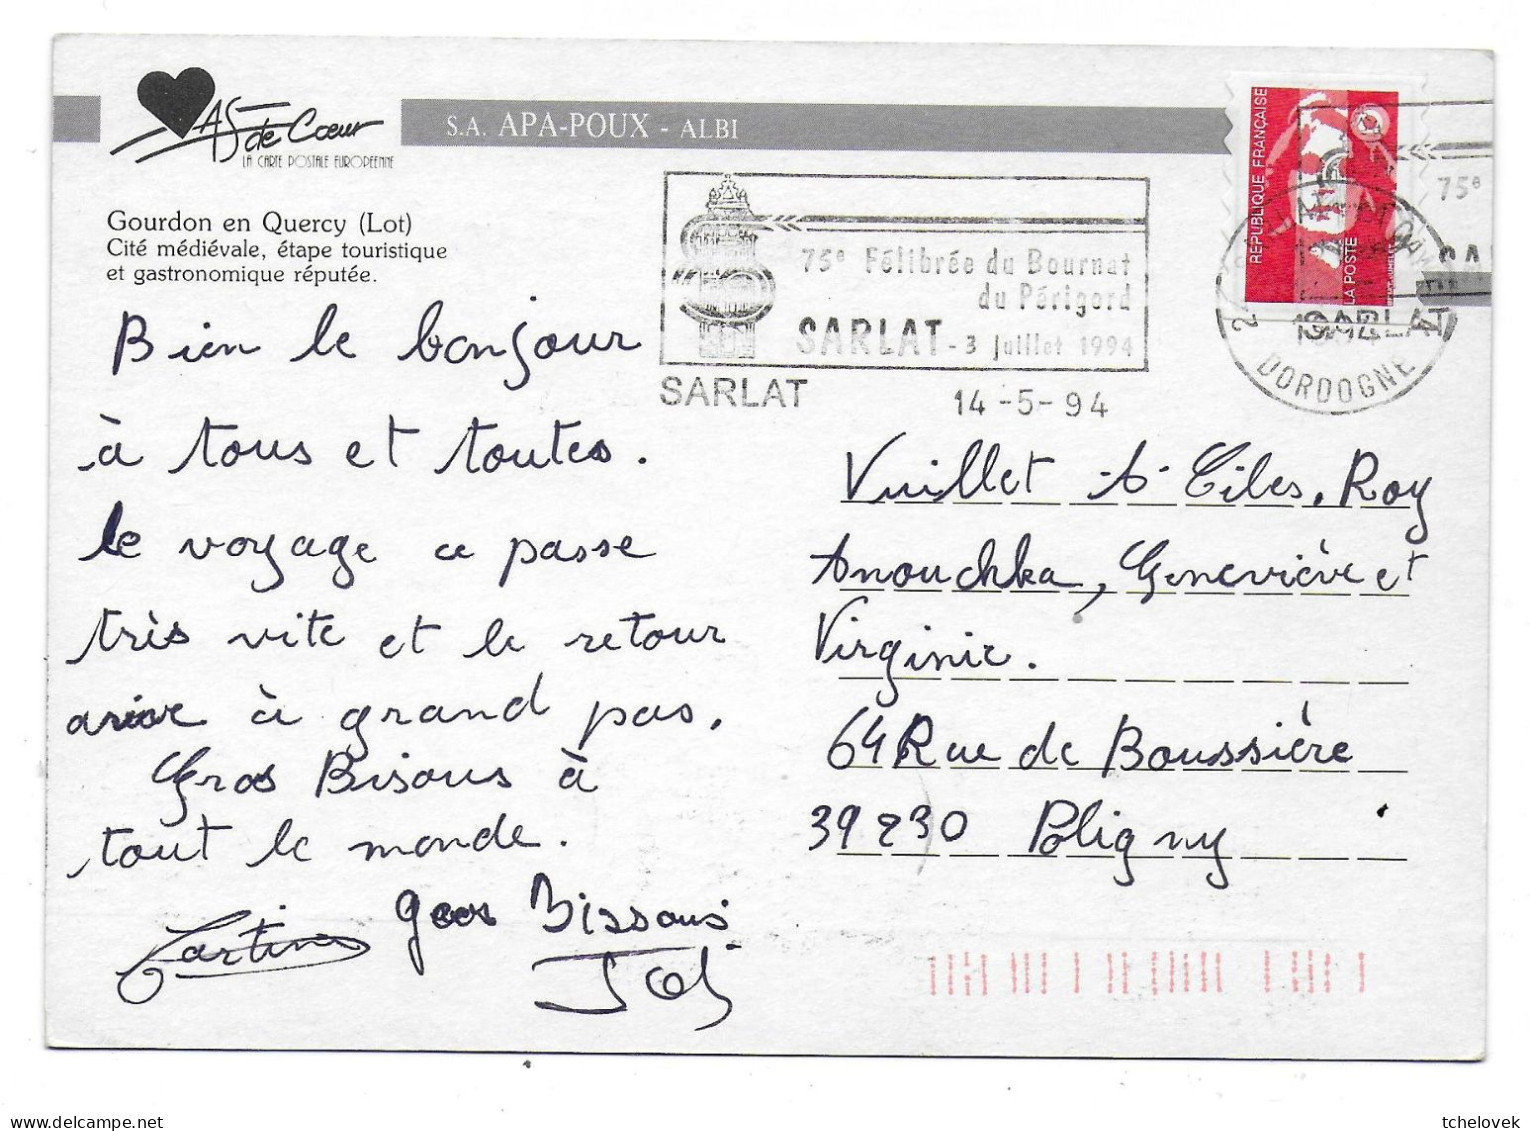 AS de Cœur
LA CARTE POSTALE EUROPEENNE
S.A. APA-POUX - ALBI
Gourdon en Quercy (Lot)
Cité médiévale, étape touristique
et gastronomique réputée.
75e Félibrée du Bournat
du Périgord
SARLAT - 3 juillet 1994
SARLAT 14-5-94
REPUBLIQUE FRANÇAISE
LA POSTE
75e
SARLAT
DORDOGNE
Bien le bonjour
à tous et toutes.
le voyage ce passe
très vite et le retour
arive à grand pas.
Gros Bisous à
tout le monde.
gros Bissous
Vuillet Giles, Roy
Anouchka, Geneviève et
Virginie.
64 Rue de Boussière
39230 Poligny
tchelovek
delcampe.net